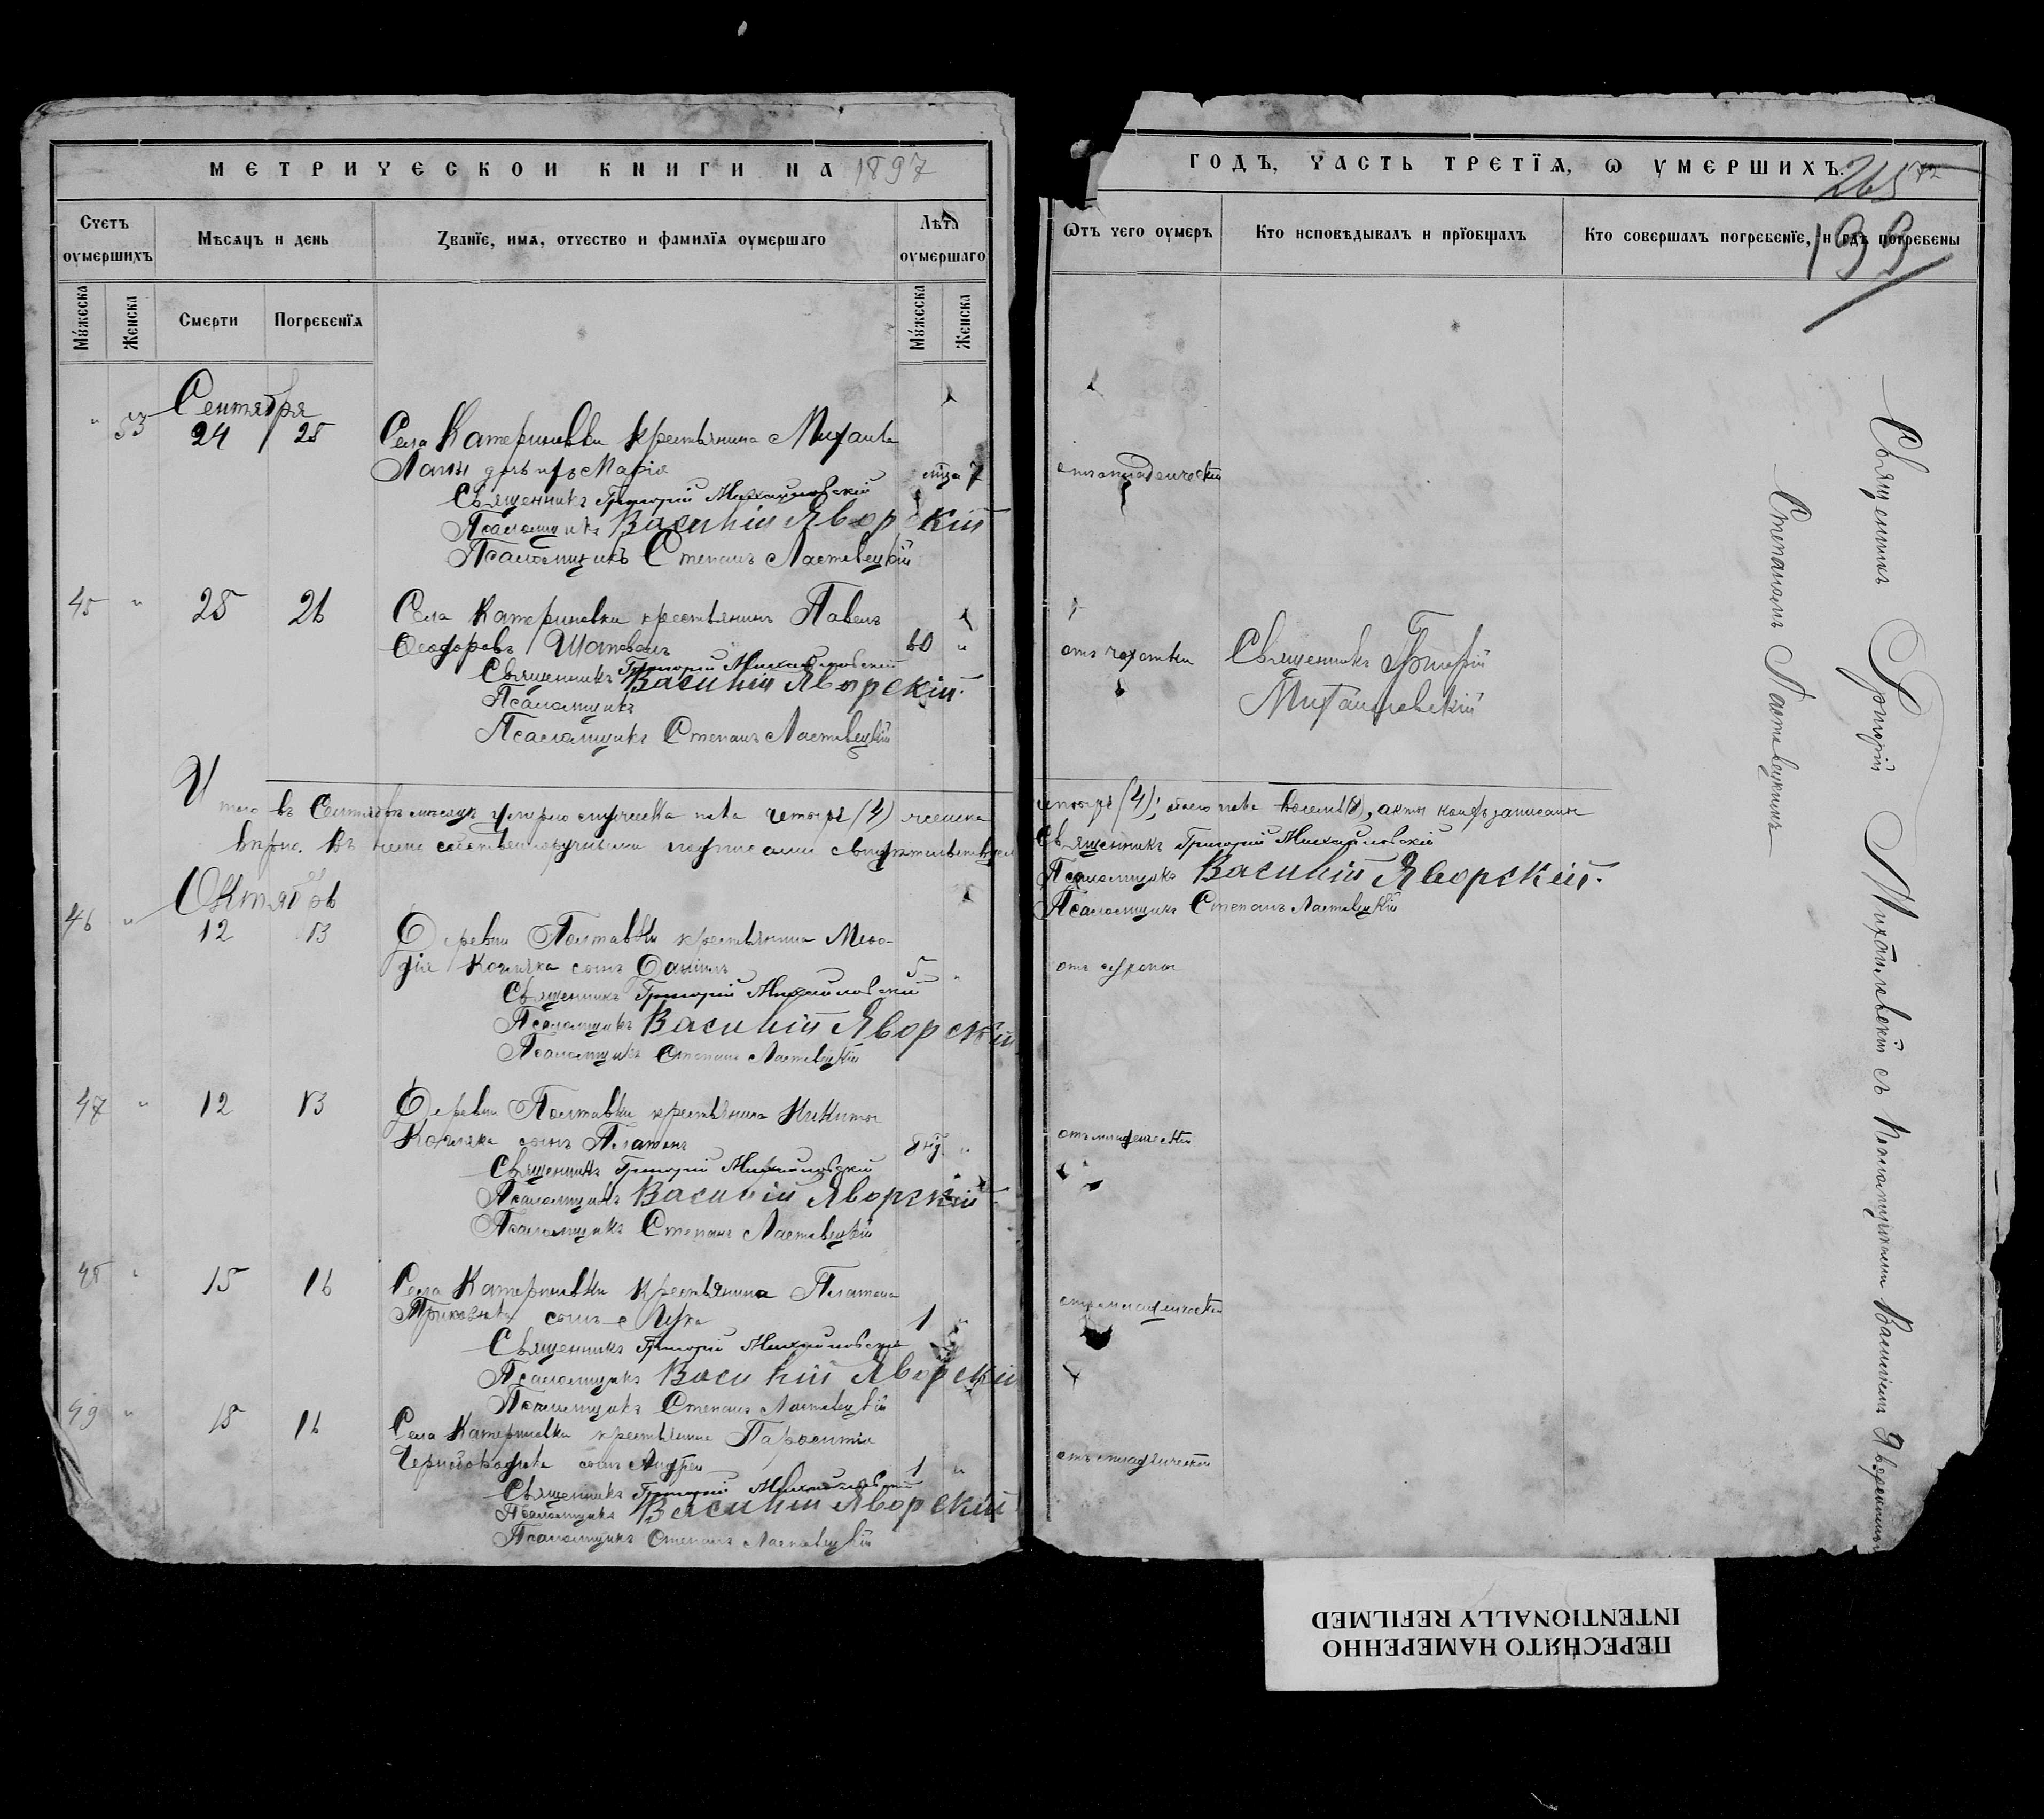 МЕТРИЧЕСКОЙ КНИГИ НА 1897
Счетъ оумершихъ
Мѣсяцъ и день
Званїе, имя, отчество и фамилїя оумершаго
Лѣта оумершаго
Мꙋжеска
Женска
Смерти
Погребенїя
Мꙋжеска
Женска
Сентября
" 53 24 25 Села Катериновки крестьянина Михаила
дочь Марія 7
Священникъ Григорій Михайловскій
Псаломщикъ Василій Яворскій
Псаломщикъ Степанъ Ластовецкій
45 " 25 26 Села Катериновки крестьянинъ Павелъ
Ѳеодоровъ Шаповалъ 60 "
Священникъ Григорій Михайловскій
Псаломщикъ Василій Яворскій.
Псаломщикъ Степанъ Ластовецкій
Итого въ Сентябрѣ мѣсяцѣ умерло мужеска пола четыре (4) женска
вѣрно. Въ чемъ собственноручными подписами свидѣтельствуемъ
Октябрь
46 " 12 13 Деревни Полтавки крестьянина Меѳо-
дія сынъ Даніилъ 5 "
Священникъ Григорій Михайловскій
Псаломщикъ Василій Яворскій
Псаломщикъ Степанъ Ластовецкій
47 " 12 13 Деревни Полтавки крестьянина Никиты
сынъ Платонъ "
Священникъ Григорій Михайловскій
Псаломщикъ Василій Яворскій
Псаломщикъ Степанъ Ластовецкій
48 " 15 16 Села Катериновки крестьянина Платона
сынъ Лука 1 "
Священникъ Григорій Михайловскій
Псаломщикъ Василій Яворскій
Псаломщикъ Степанъ Ластовецкій
49 " 15 16 Села Катериновки крестьянина
сынъ Андрей 1 "
Священникъ Григорій Михайловскій
Псаломщикъ Василій Яворскій
Псаломщикъ Степанъ Ластовецкій
ГОДЪ, ЧАСТЬ ТРЕТЇЯ, Ѡ УМЕРШИХЪ.
265
199
Ѿтъ чего оумеръ
Кто исповѣдывалъ и прїобщалъ
Кто совершалъ погребенїе, и гдѣ погребены
отъ младенческой
отъ чахотки
Священникъ Григорій
Михайловскій
четыре (4); обоего пола восемь (8), акты коихъ записаны
Священникъ Григорій Михайловскій
Псаломщикъ Василій Яворскій.
Псаломщикъ Степанъ Ластовецкій
отъ
отъ младенческой
отъ младенческой
отъ младенческой
Священникъ Григорій Михайловскій съ Псаломщиками Василіемъ Яворскимъ
Степаномъ Ластовецкимъ
ПЕРЕСНЯТО НАМЕРЕННО
INTENTIONALLY REFILMED